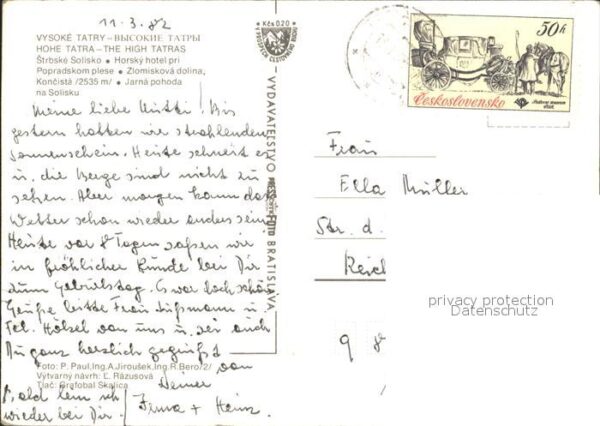 11.3.82
VYSOKÉ TATRY – ВЫСОКИЕ ТАТРЫ
HOHE TATRA – THE HIGH TATRAS
Štrbské Solisko • Horský hotel pri
Popradskom plese • Zlomisková dolina,
Končistá /2535 m/ • Jarná pohoda
na Solisku
Meine liebe Mutti! Bis
gestern hatten wir strahlenden
Sonnenschein. Heute schneit es
u. die Berge sind nicht zu
sehen. Aber morgen kann das
Wetter schon wieder anders sein.
Heute vor 8 Tagen saßen wir
in fröhlicher Runde bei Dir
zum Geburtstag. Es war doch schön
Grüße bitte Frau Süßmann u.
Frl. Hölzel von uns u. sei auch
Du ganz herzlich gegrüßt
von
Deiner
Irma + Heinz
Bald bin ich
wieder bei Dir.
Foto: P. Paul, Ing. A. Jiroušek, Ing. R. Bero /2/
Výtvarný návrh: Ľ. Rázusová
Tlač: Grafobal Skalica
Kčs 0.20
VYDAVATEĽSTVO
BRATISLAVA
50h
Československo
Frau
Ella Müller
Str. d.
Reich
9
privacy protection
Datenschutz